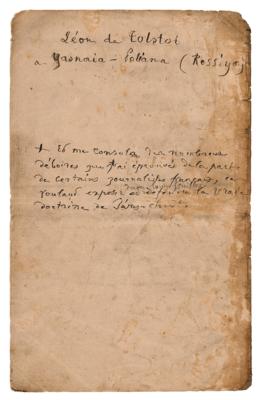 Léon de Tolstoi
a Yasnaia-Poliana (Rossiya)
+ Et me consola des nombreux
déboires que j'ai éprouvés de la part
de certains journalistes français, en
voulant exposer et défendre la vraie
doctrine de